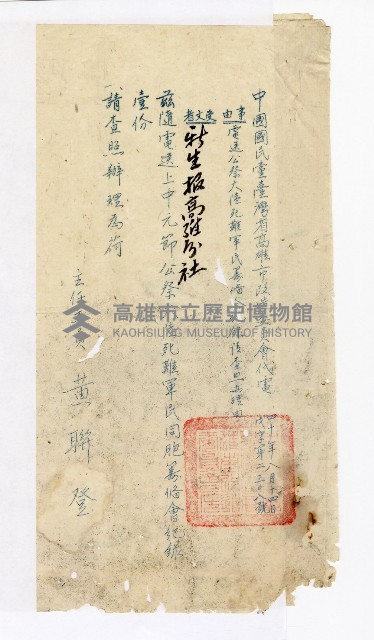 中國國民黨臺灣省高雄市改造委員會代電
四十年八月十四日
事由
電送公祭大陸死難軍民籌備會紀錄請查照辦理由
受文者
新生報高雄分社
茲隨電送上中元節公祭大陸死難軍民同胞籌備會紀錄
壹份
請查照辦理為荷
主任委員 黃聯登
高雄市立歷史博物館
KAOHSIUNG MUSEUM OF HISTORY